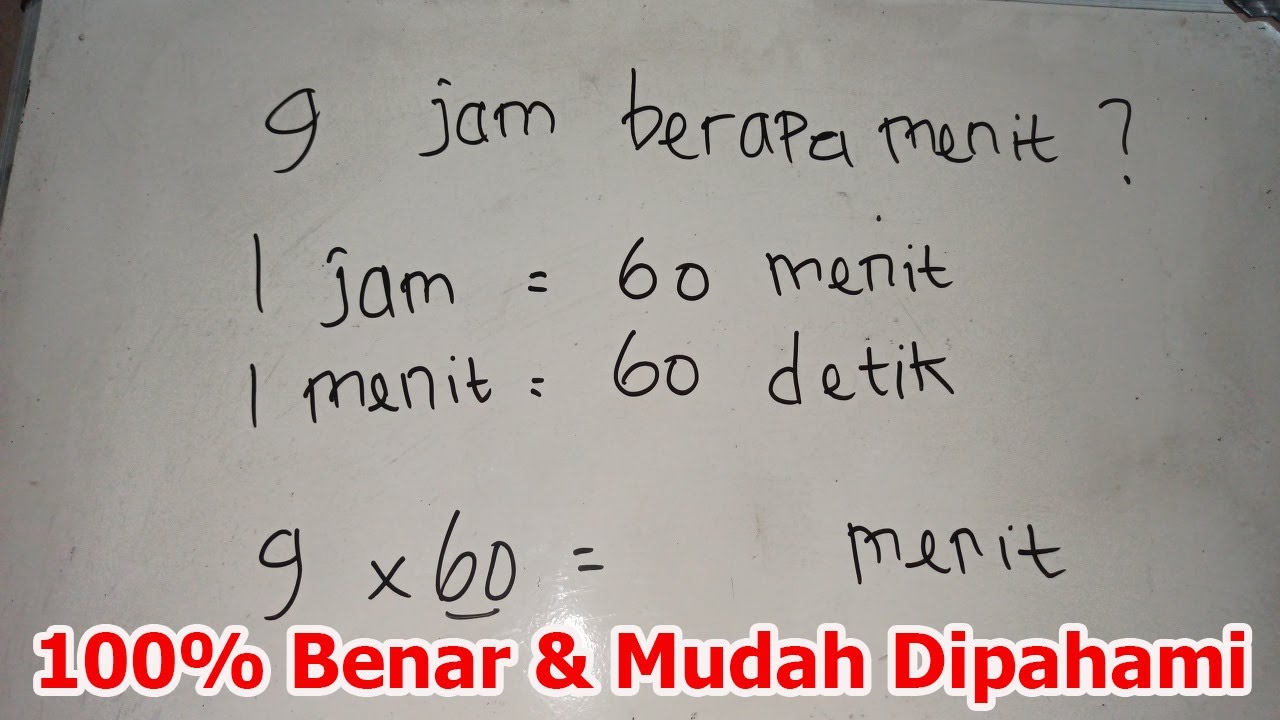 9 jam berapa menit ?
1 jam = 60 menit
1 menit = 60 detik
9 x 60 = menit
100% Benar & Mudah Dipahami